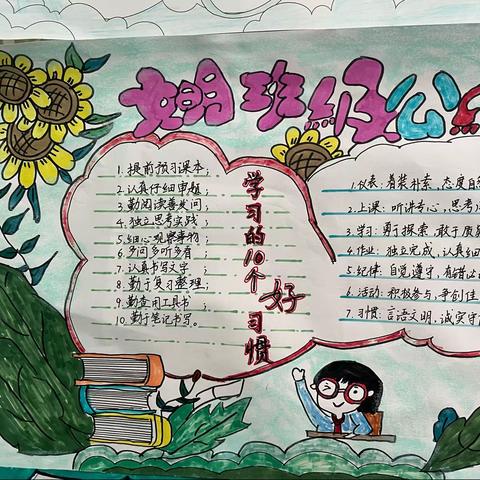 文明班级公
学习的10个好习惯
1. 提前预习课本；
2. 认真仔细审题；
3. 勤阅读善发问；
4. 独立思考实践；
5. 细心观察事物；
6. 多问多听多看；
7. 认真书写文字；
8. 勤于复习整理；
9. 勤查问工具书；
10. 勤于笔记书写。
1. 仪表：着装朴素，态度自
2. 上课：听讲专心，思考
3. 学习：勇于探索，敢于质
4. 作业：独立完成，认真细
5. 纪律：自觉遵守，有错
6. 活动：积极参与，争创佳
7. 习惯：言语文明，诚实守